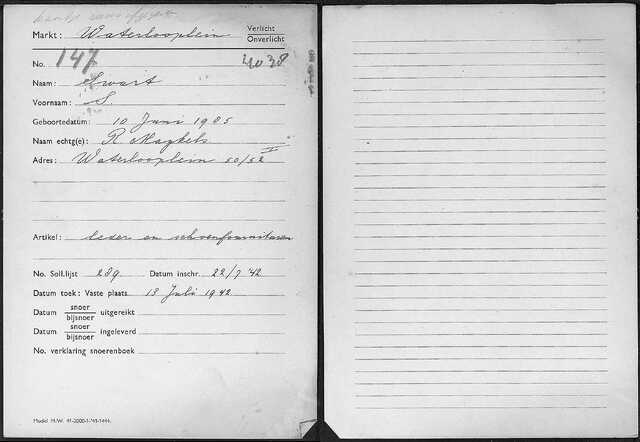 Markt: Waterlooplein Verlicht
Onverlicht
No. 147 4038
Naam: Swart
Voornaam: S
Geboortedatum: 10 Juni 1905
Naam echtg(e): R
Adres: Waterlooplein 50/52 I
Artikel: leder en schoenfournituren
No. Soll.lijst 289 Datum inschr. 22/7 '42
Datum toek: Vaste plaats 13 Juli 1942
Datum snoer
bijsnoer uitgereikt
Datum snoer
bijsnoer ingeleverd
No. verklaring snoerenboek
Model M.W. 41-2000-1-'41-1444.